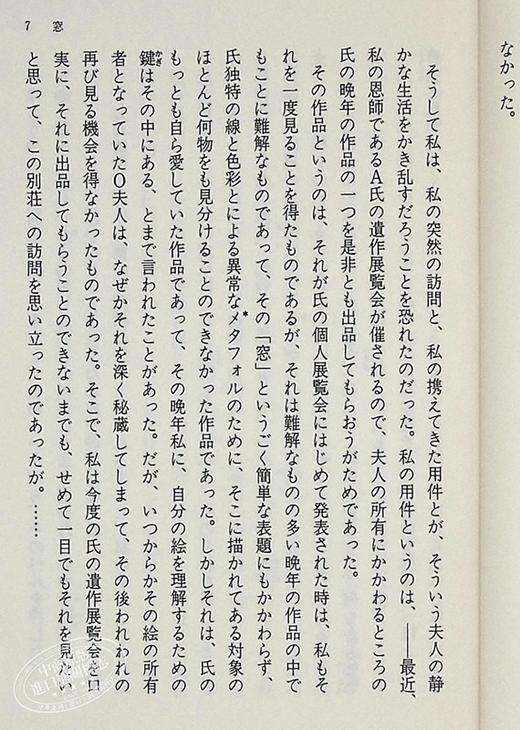 なかった。
7 窓
そうして私は、私の突然の訪問と、私の携えてきた用件とが、そういう夫人の静
かな生活をかき乱すだろうことを恐れたのだった。私の用件というのは、――最近、
私の恩師であるA氏の遺作展覧会が催されるので、夫人の所有にかかわるところの
氏の晩年の作品の一つを是非とも出品してもらおうがためであった。
その作品というのは、それが氏の個人展覧会にはじめて発表された時は、私もそ
れを一度見ることを得たものであるが、それは難解なものの多い晩年の作品の中で
もことに難解なものであって、その「窓」というごく簡単な表題にもかかわらず、
氏独特の線と色彩とによる異常なメタフォル*のために、そこに描かれてある対象の
ほとんど何物をも見分けることのできなかった作品であった。しかしそれは、氏の
もっとも自ら愛していた作品であって、その晩年私に、自分の絵を理解するための
鍵かぎはその中にある、とまで言われたことがあった。だが、いつからかその絵の所有
者となっていたO夫人は、なぜかそれを深く秘蔵してしまって、その後われわれの
再び見る機会を得なかったものであった。そこで、私は今度の氏の遺作展覧会を口
実に、それに出品してもらうことのできないまでも、せめて一目でもそれを見たい
と思って、この別荘への訪問を思い立ったのであったが。……